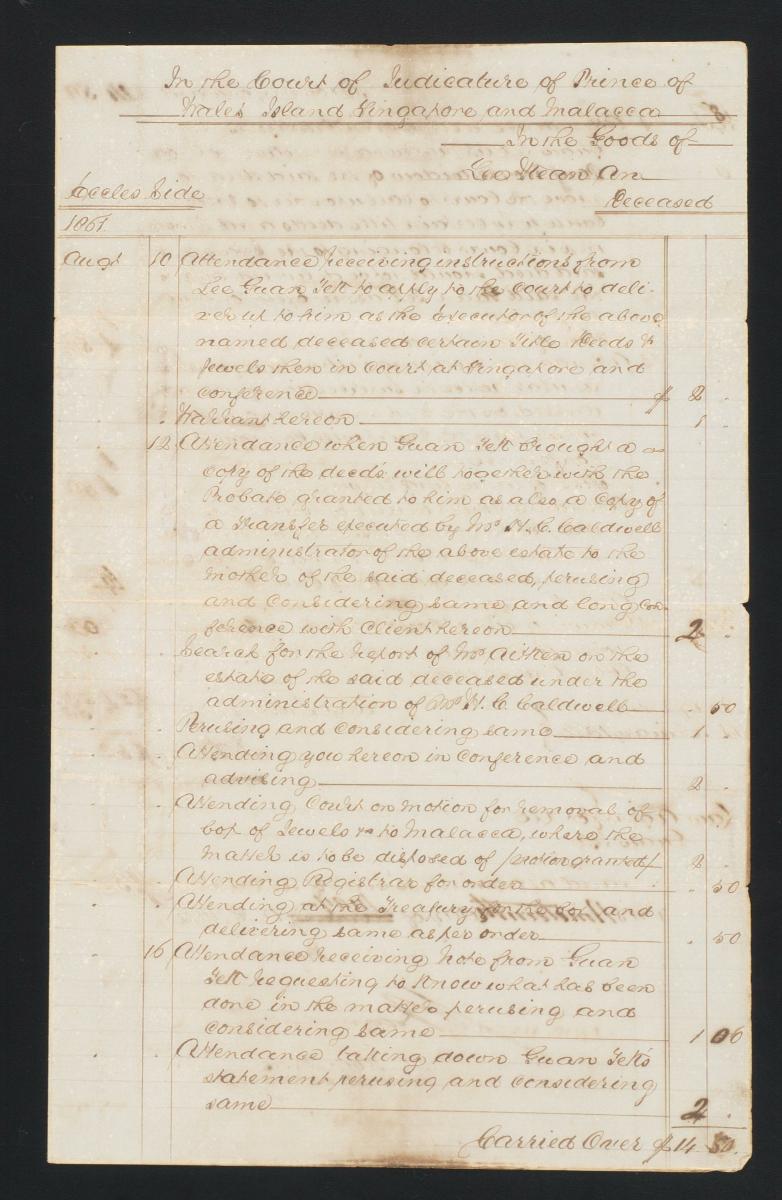 In the Court of Judicature of Prince of
Wales Island Singapore and Malacca
In the Goods of
Lee Kean An
Eccles. Side
Deceased
1861.
Augt 10 Attendance receiving instructions from
Lee Guan Tett to apply to the Court to deli-
ver up to him as the Executor of the above
named deceased certain Title Deeds &
Jewels then in Court at Singapore and
conference $ 2 .
. Warrant hereon 1 .
12 Attendance when Guan Tett brought a
copy of the deced's will together with the
Probate granted to him as also a Copy of
a Transfer executed by Mr. H. C. Caldwell
administrator of the above estate to the
mother of the said deceased, perusing
and considering same and long con
ference with Client hereon 2 .
. . Search for the report of Mr. Aitken on the
estate of the said deceased under the
administration of Mr. H. C. Caldwell . 50
. . Perusing and considering same 1 .
. . Attending you hereon in Conference and
advising 2 .
. . Attending Court on motion for removal of
box of Jewels &a to Malacca, where the
matter is to be disposed of /motion granted/ 2 .
. . Attending Registrar for order . 50
. . Attending at the Treasury for the box and
delivering same as per order . 50
16 Attendance receiving Note from Guan
Tett requesting to know what has been
done in the matter perusing and
considering same 1 00
. . Attendance taking down Guan Tett's
statement perusing and considering
same 2 .
Carried Over $ 14 50.